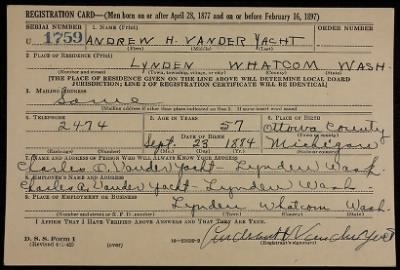 REGISTRATION CARD—(Men born on or after April 28, 1877 and on or before February 16, 1897)
SERIAL NUMBER 1. NAME (Print) ORDER NUMBER
U 1759 ANDREW H. VANDER YACHT
(First) (Middle) (Last)
2. PLACE OF RESIDENCE (Print)
LYNDEN WHATCOM WASH.
(Number and street) (Town, township, village, or city) (County) (State)
[THE PLACE OF RESIDENCE GIVEN ON THE LINE ABOVE WILL DETERMINE LOCAL BOARD
JURISDICTION; LINE 2 OF REGISTRATION CERTIFICATE WILL BE IDENTICAL]
3. MAILING ADDRESS
Same
[Mailing address if other than place indicated on line 2. If same insert word same]
4. TELEPHONE 5. AGE IN YEARS 6. PLACE OF BIRTH
2474 57 Ottowa County
DATE OF BIRTH
Sept. 23 1884 Michigan
(Mo.) (Day) (Yr.) (State or country)
7. NAME AND ADDRESS OF PERSON WHO WILL ALWAYS KNOW YOUR ADDRESS
Charles A. Vander Yacht - Lynden Wash.
8. EMPLOYER'S NAME AND ADDRESS
Charles A. Vander Yacht - Lynden Wash
9. PLACE OF EMPLOYMENT OR BUSINESS
Lynden Whatcom Wash.
(Number and street or R. F. D. number) (Town) (County) (State)
I AFFIRM THAT I HAVE VERIFIED ABOVE ANSWERS AND THAT THEY ARE TRUE.
D. S. S. Form 1
(Revised 4-1-42) Andrew H Vander Yacht
(Registrant's signature)